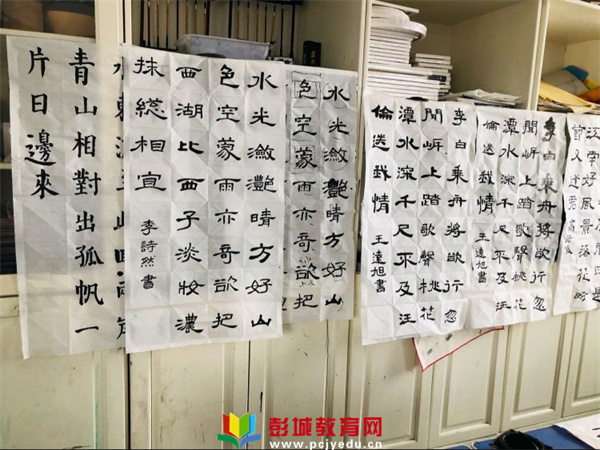 水東流至此回兩岸
青山相對出孤帆一
片日邊來
水光瀲灩晴方好山
色空蒙雨亦奇欲把
西湖比西子淡妝濃
抹緫相宜
李詩然書
水光瀲灩晴方好山
色空蒙雨亦奇欲把
李白乘舟將欲行忽
聞岸上踏歌聲桃花
潭水深千尺不及汪
倫送我情
王達旭書
李白乘舟將欲行忽
聞岸上踏歌聲桃花
潭水深千尺不及汪
倫送我情
王達旭書
江南好風景落花時
彭城教育网
www.pcjyedu.cn